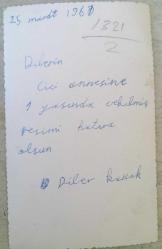 25 mart 1961
1321
2
Dilerin
Cici annesine
1 yaşında çekilmiş
resimi hatıra
olsun
Diler